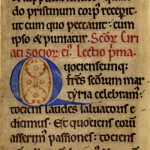 do prostratum corp' recepit
cum quo peccauit: cum
ipso & puniatur. Scōr Ciri
aci socior' ei' Lectio p'ma
Quociensciunq;
tres scōrum mar
tyria celebram'
tociens laudes saluatoris e
dicimus. Et quociens eorum
asserim' passiones: tociens